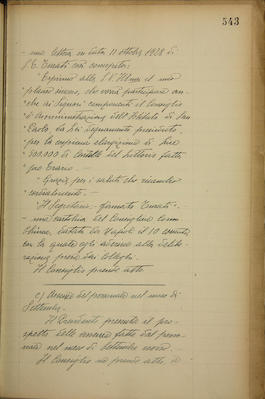 543
- una lettera in data 11 ottobre 1928 di
S.E. Turati così concepita:
"Esprimo alla S.V. Ill.ma il mio
plauso vivo, che vorrà partecipare an-
che ai Signori componenti il Consiglio
di Amministrazione dell'Istituto di San
Paolo, da Lei degnamente presieduto,
per la cospicua elargizione di lire
500.000 di Cartelle del Littorio fatta
pro Erario. -
"Grazie per i saluti che ricambio
cordialmente. -
"Il Segretario - firmato Turati". -
- una cartolina del Consigliere Comm.
datata da Napoli il 10 corrente,
con la quale egli aderisce alle delibe-
razioni prese dai Colleghi.
Il Consiglio prende atto.
c) del personale nel mese di
Settembre.
Il Presidente presenta il pro-
spetto delle assenze fatte dal perso-
nale nel mese di Settembre
Il Consiglio ne prende atto,